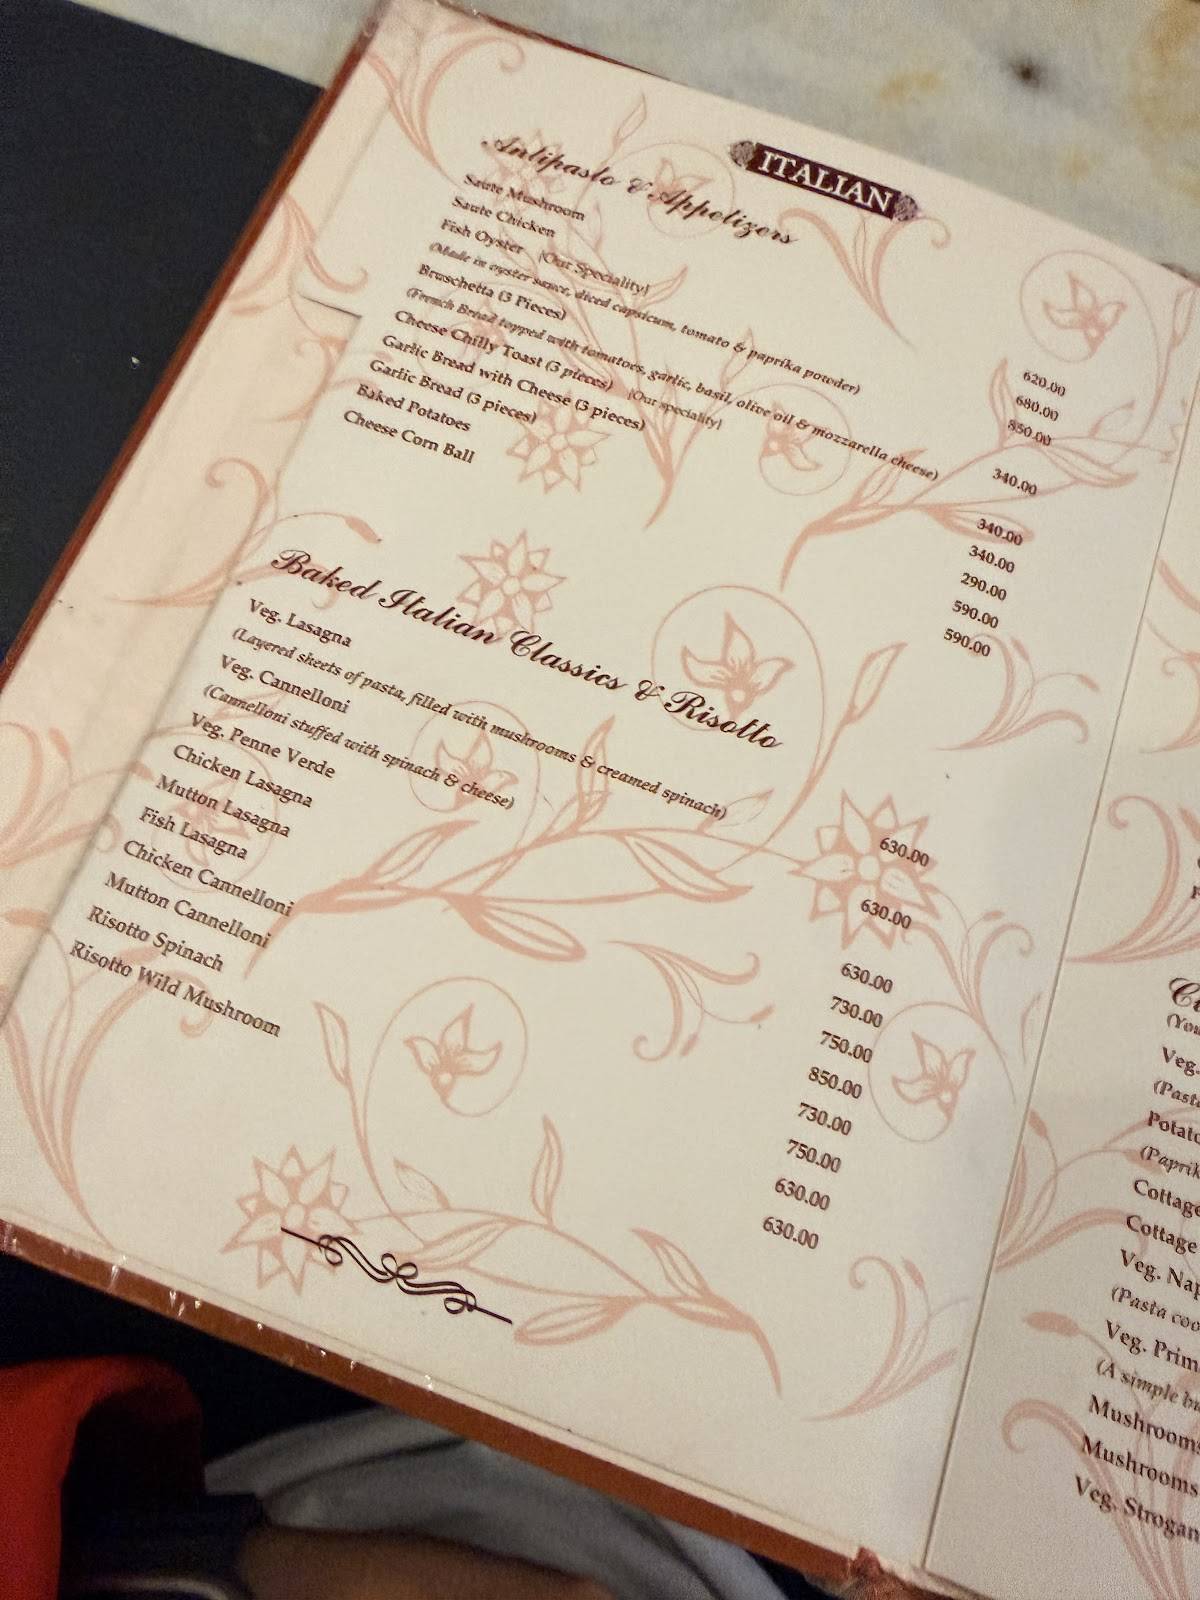 ITALIAN
Antipasto & Appetizers
Saute Mushroom 620.00
Saute Chicken 680.00
Fish Oyster [Our Speciality] 850.00
(Made in oyster sauce, diced capsicum, tomato & paprika powder)
Bruschetta (3 Pieces) 340.00
(French Bread topped with tomatoes, garlic, basil, olive oil & mozzarella cheese)
Cheese Chilly Toast (3 pieces) [Our speciality] 340.00
Garlic Bread with Cheese (3 pieces) 340.00
Garlic Bread (3 pieces) 290.00
Baked Potatoes 590.00
Cheese Corn Ball 590.00
Baked Italian Classics & Risotto
Veg. Lasagna 630.00
(Layered sheets of pasta, filled with mushrooms & creamed spinach)
Veg. Cannelloni 630.00
(Cannelloni stuffed with spinach & cheese)
Veg. Penne Verde 630.00
Chicken Lasagna 730.00
Mutton Lasagna 750.00
Fish Lasagna 850.00
Chicken Cannelloni 730.00
Mutton Cannelloni 750.00
Risotto Spinach 630.00
Risotto Wild Mushroom 630.00
(You
Veg.
(Pasta
Potato
(Paprik
Cottage
Cottage
Veg. Nap
(Pasta coo
Veg. Prim
(A simple bu
Mushrooms
Mushrooms
Veg. Strogan